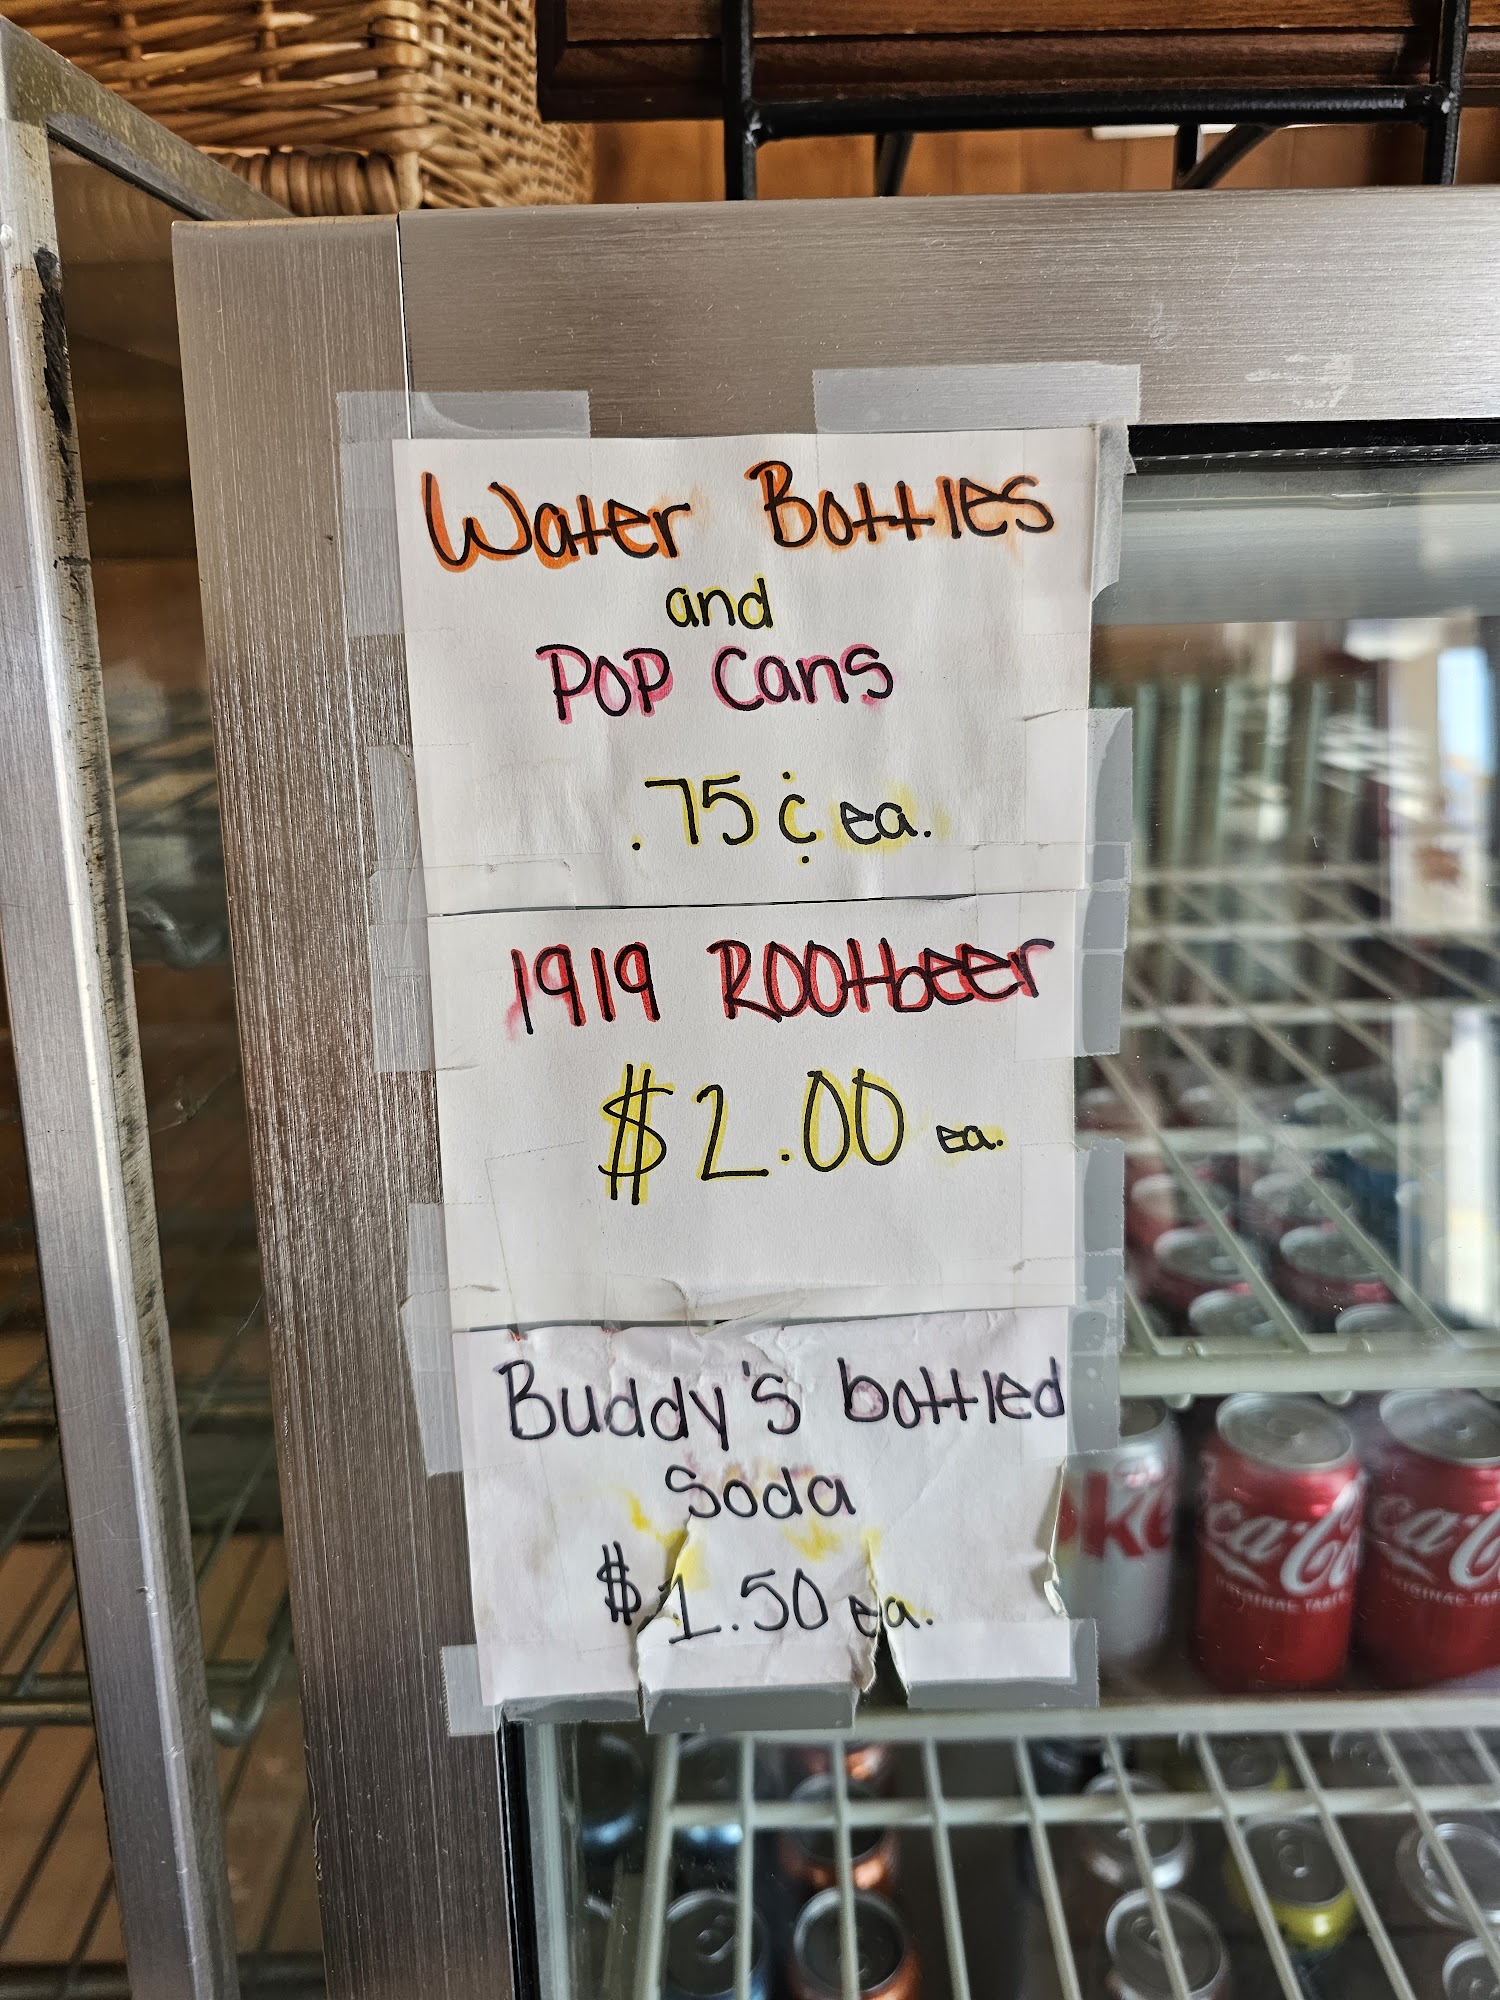 Water Bottles
and
Pop Cans
.75¢ ea.
1919 Rootbeer
$2.00 ea.
Buddy's bottled
Soda
$1.50 ea.
Coca-Cola
ORIGINAL TASTE